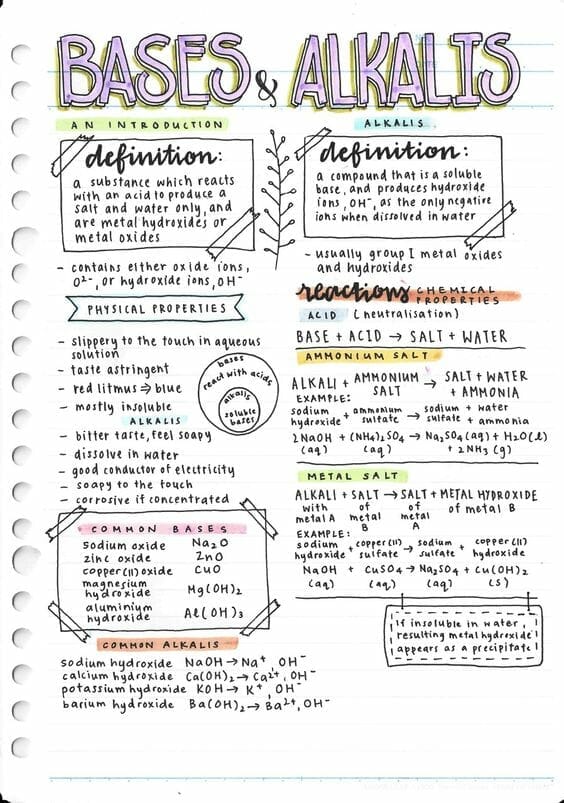 BASES & ALKALIS
AN INTRODUCTION
definition:
a substance which reacts
with an acid to produce a
salt and water only, and
are metal hydroxides or
metal oxides
- contains either oxide ions,
O²⁻, or hydroxide ions, OH⁻
PHYSICAL PROPERTIES
- slippery to the touch in aqueous
solution
- taste astringent
- red litmus ⇒ blue
- mostly insoluble
bases
react with acids
alkalis
soluble
bases
ALKALIS
- bitter taste, feel soapy
- dissolve in water
- good conductor of electricity
- soapy to the touch
- corrosive if concentrated
COMMON BASES
sodium oxide Na₂O
zinc oxide ZnO
copper(II) oxide CuO
magnesium
hydroxide Mg(OH)₂
aluminium
hydroxide Al(OH)₃
COMMON ALKALIS
sodium hydroxide NaOH → Na⁺, OH⁻
calcium hydroxide Ca(OH)₂ → Ca²⁺, OH⁻
potassium hydroxide KOH → K⁺, OH⁻
barium hydroxide Ba(OH)₂ → Ba²⁺, OH⁻
ALKALIS
definition:
a compound that is a soluble
base, and produces hydroxide
ions, OH⁻, as the only negative
ions when dissolved in water
- usually group I metal oxides
and hydroxides
reactions CHEMICAL
PROPERTIES
ACID (neutralisation)
BASE + ACID → SALT + WATER
AMMONIUM SALT
ALKALI + AMMONIUM SALT → SALT + WATER + AMMONIA
EXAMPLE:
sodium hydroxide + ammonium sulfate → sodium sulfate + water + ammonia
2NaOH + (NH₄)₂SO₄ → Na₂SO₄(aq) + H₂O(l)
(aq) (aq) + 2NH₃(g)
METAL SALT
ALKALI + SALT → SALT + METAL HYDROXIDE
with of of of metal B
metal A metal metal
B A
EXAMPLE:
sodium hydroxide + copper(II) sulfate → sodium sulfate + copper(II) hydroxide
NaOH + CuSO₄ → Na₂SO₄ + Cu(OH)₂
(aq) (aq) (aq) (s)
if insoluble in water,
resulting metal hydroxide
appears as a precipitate